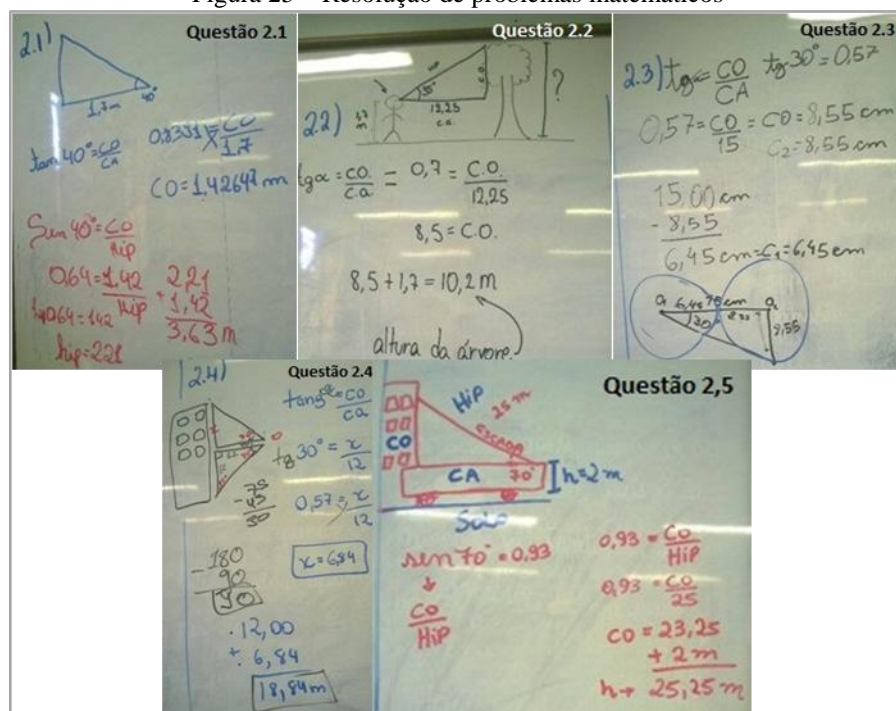 Figura 25 – Resolução de problemas matemáticos
Questão 2.1
2.1)
40°
1,7m
tan 40° = CO/CA
0,8391 = CO/1,7
CO = 1,42647 m
Sen 40° = CO/Hip
0,64 = 1,42/Hip
0,64 = 1,42
hip = 2,21
2,21
+ 1,42
3,63 m
Questão 2.2
2.2)
Hip
C.O.
?
12,25
C.a.
tgα = C.O./C.a = 0,7 = C.O./12,25
8,5 = C.O.
8,5 + 1,7 = 10,2 m
altura da árvore.
Questão 2.3
2.3) tgα = CO/CA tg 30° = 0,57
0,57 = CO/15 = CO = 8,55 cm
C₂ = 8,55 cm
15,00 cm
- 8,55
6,45 cm = C₁ = 6,45 cm
8,55
Questão 2.4
2.4)
tang = CO/CA
tg 30° = x/12
0,57 = x/12
x = 6,84
- 75
45
30
- 180
90
90
12,00
+ 6,84
18,84m
Questão 2,5
CO
HiP
25 m
ESCADA
CA
70°
h=2m
Solo
sen 70° = 0,93
CO/HiP
0,93 = CO/HiP
0,93 = CO/25
CO = 23,25
+ 2 m
h → 25,25 m